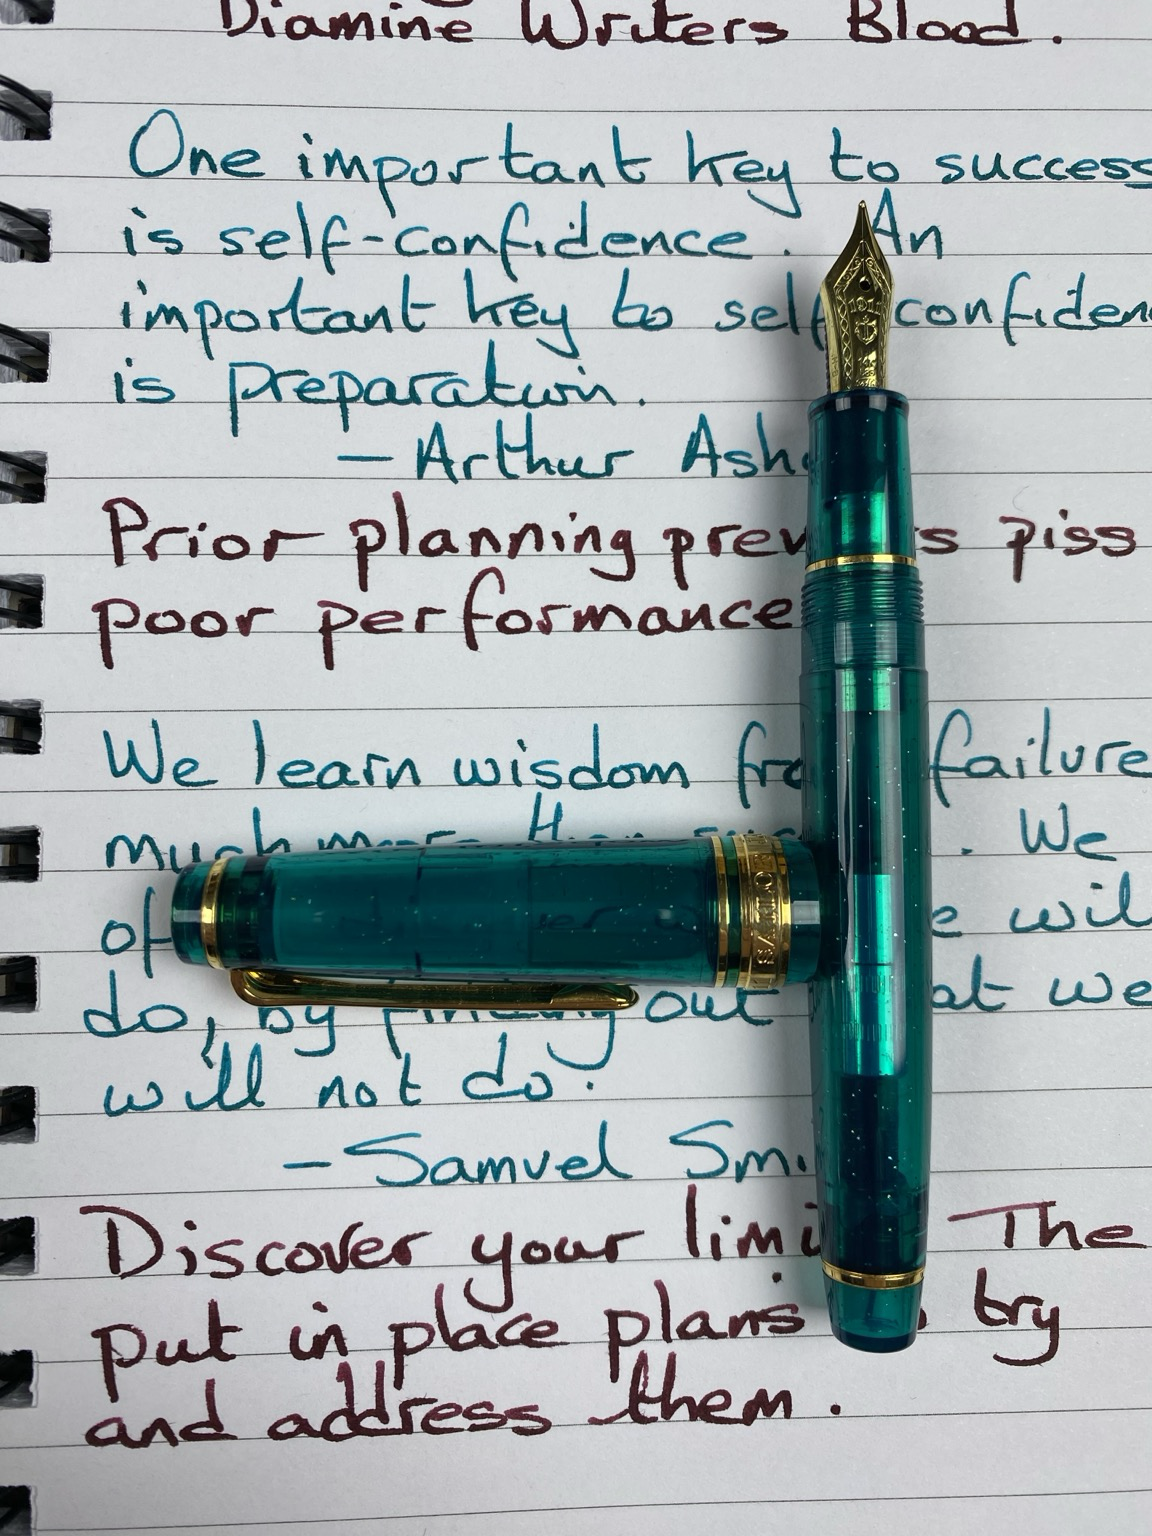 Diamine Writers Blood.
One important key to success
is self-confidence. An
important key to self confiden
is preparation.
– Arthur Ash
Prior planning prev s piss
poor performance
We learn wisdom fro failure
much more than suc . We
of e wil
do, by finding out at we
will not do.
– Samuel Smi
Discover your limi The
put in place plans try
and address them.
1911
SAILOR